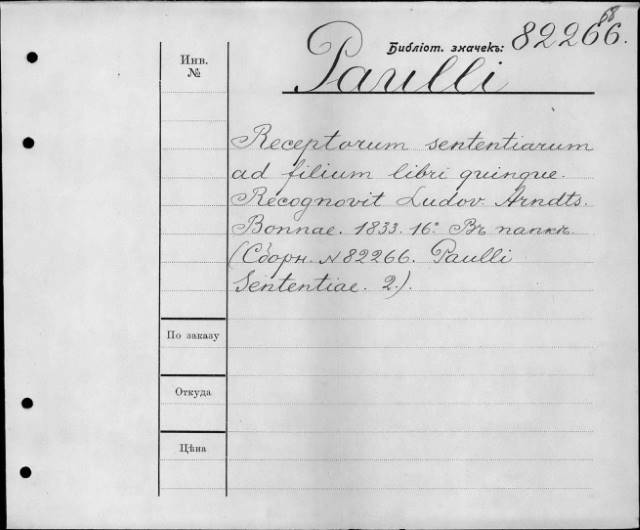 68
Библіот. значекъ: 82266.
Инв. №
Paulli
Receptorum sententiarum
ad filium libri quinque.
Recognovit Ludov. Arndts.
Bonnae. 1833. 16°. Въ папкѣ.
(Сборн. №82266. Paulli
Sententiae. 2.).
По заказу
Откуда
Цѣна